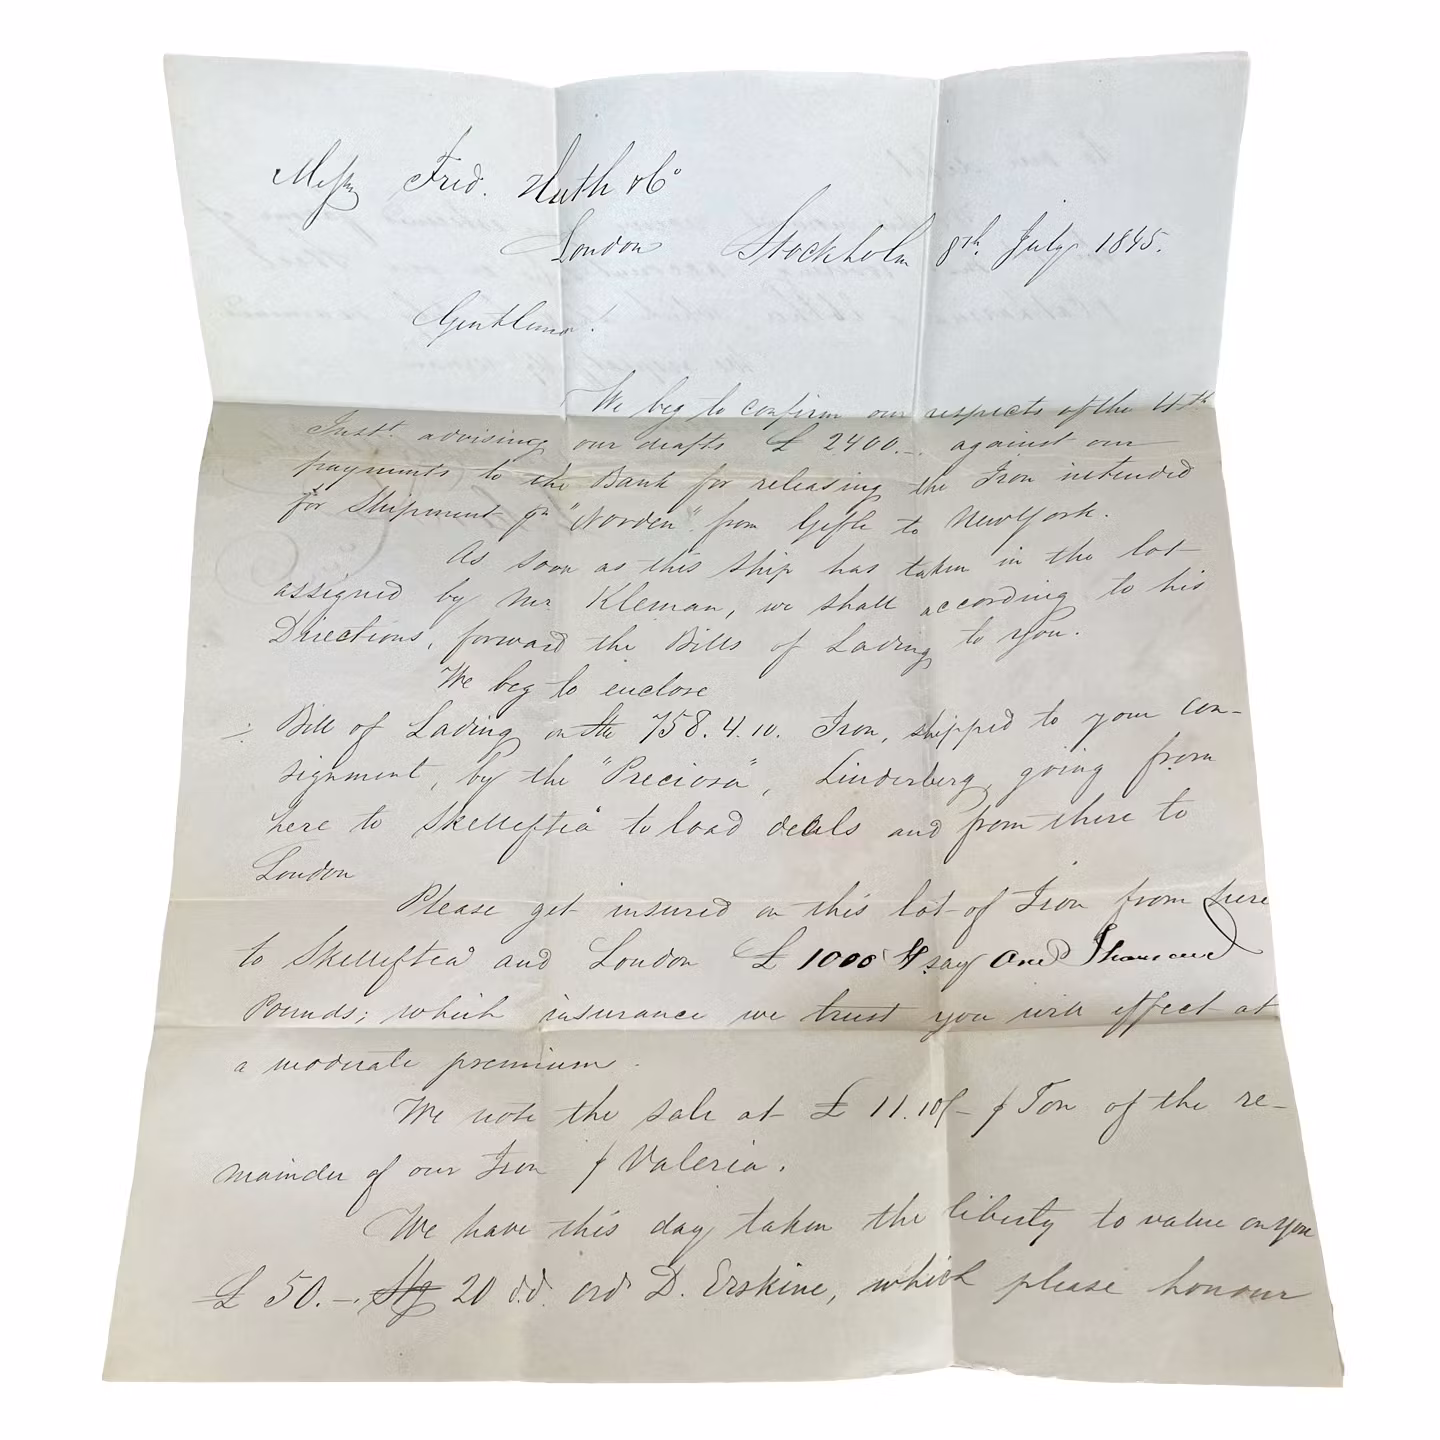 Messrs Fred. Huth & Co
London Stockholm 8th July 1845.
Gentlemen!
We beg to confirm our respects of the 4th
Inst. advising our drafts £ 2400.- against our
payments to the Bank for releasing the Iron intended
for Shipment pr "Norden" from Gefle to NewYork.
As soon as this Ship has taken in the lot
assigned by Mr Kleman, we shall according to his
Directions, forward the Bills of Lading to you.
We beg to enclose
÷ Bill of Lading on 758.4.10. Iron, shipped to your con-
signment, by the "Preciosa", Linderberg, going from
here to Skellefteå to load deals and from there to
London
Please get insured on this lot of Iron from here
to Skellefteå and London £ 1000 say One Thousand
Pounds; which insurance we trust you will effect at
a moderate premium.
We note the sale at £ 11.10/- p Ton of the re-
mainder of our Iron p Valeria.
We have this day taken the liberty to value on you
£ 50.-. Stg 20 d.d. ord D. Erskine, which please honour